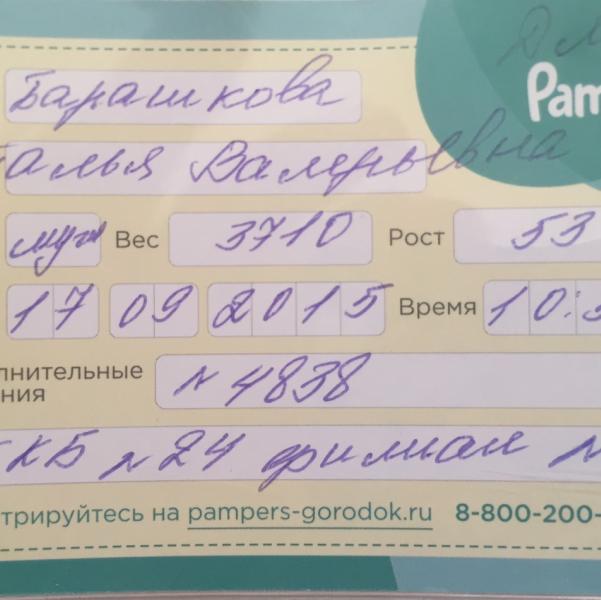 Pam
Барашкова
талья Валерьевна
муж Вес 3710 Рост 53
17 09 2015 Время 10:
лнительные
ния
N 4838
ГКБ N 24 филиал N
трируйтесь на pampers-gorodok.ru 8-800-200-